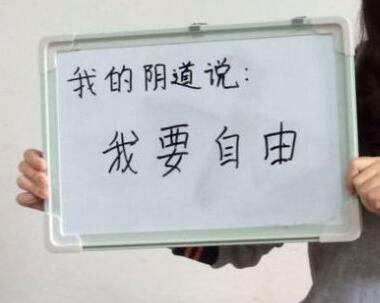 我的阴道说:
我要自由